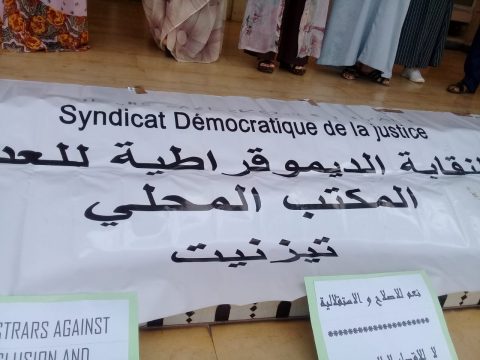 Syndicat Démocratique de la justice
النقابة الديموقراطية للعدل
المكتب المحلي
تيزنيت
STRARS AGAINST
LUSION AND
نعم للاصلاح و الاستقلالية
********************